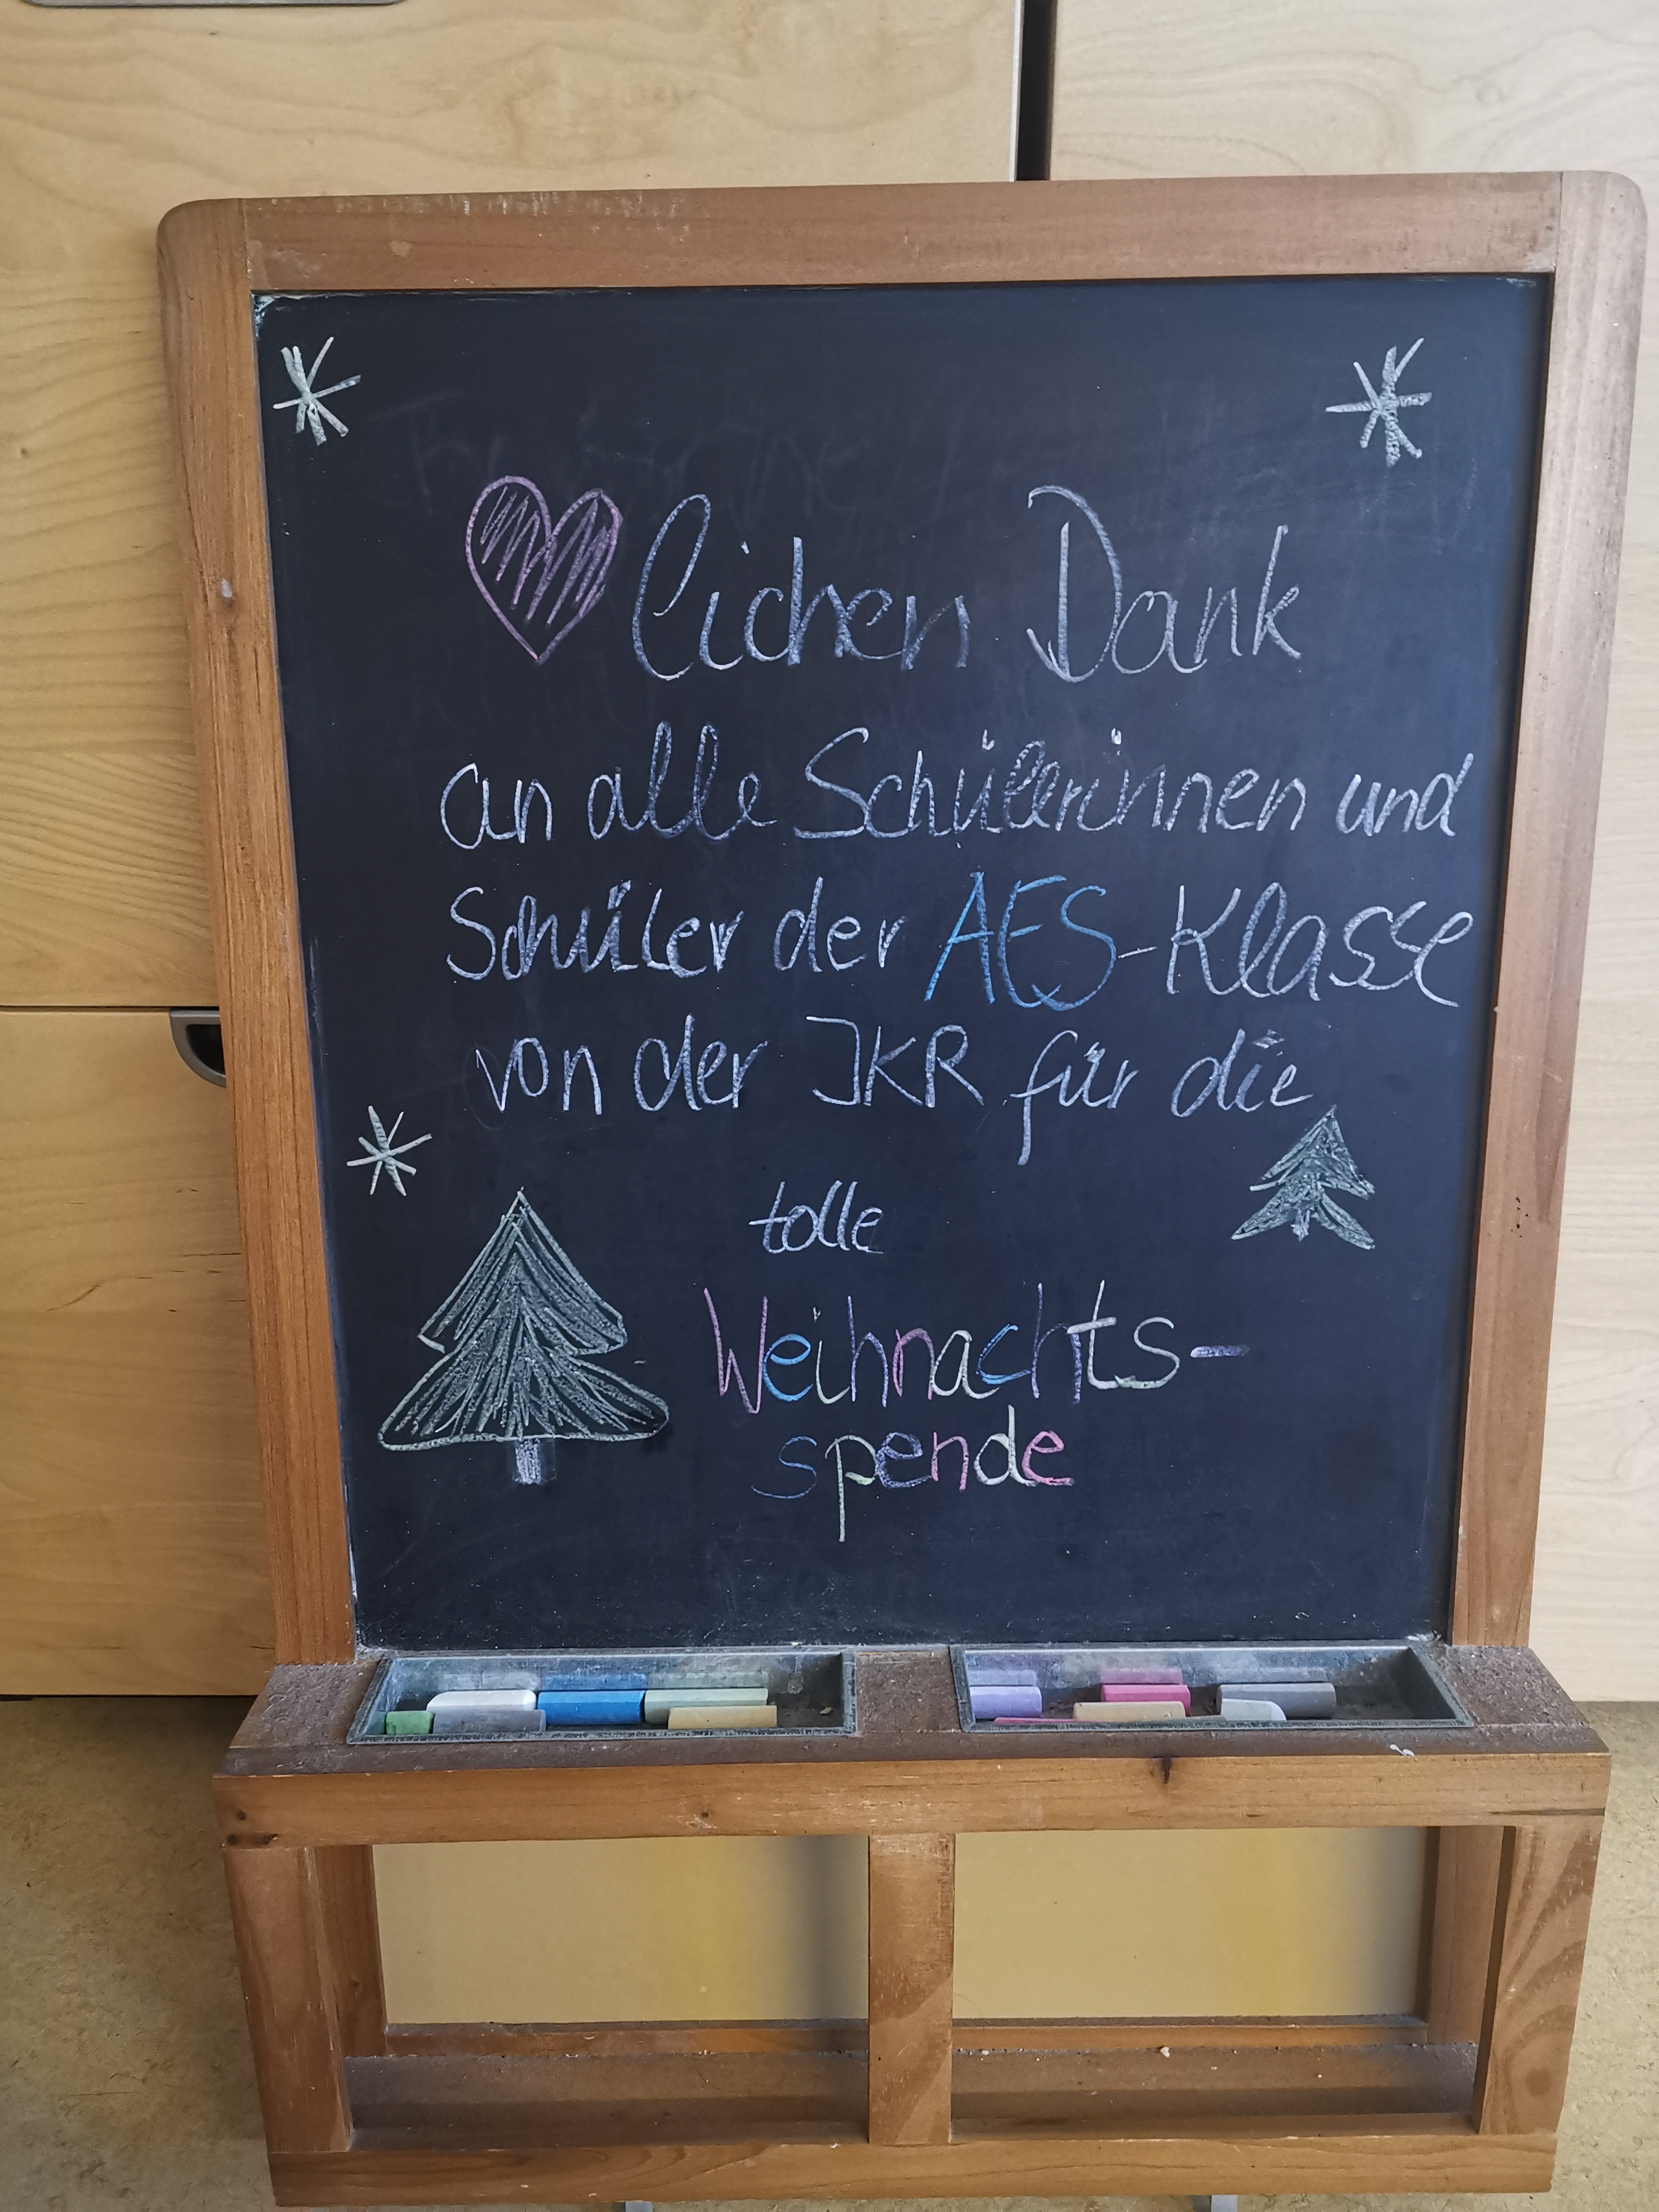 lichen Dank
an alle Schülerinnen und
Schüler der AES-Klasse
von der JKR für die
tolle
Weihnachts-
spende